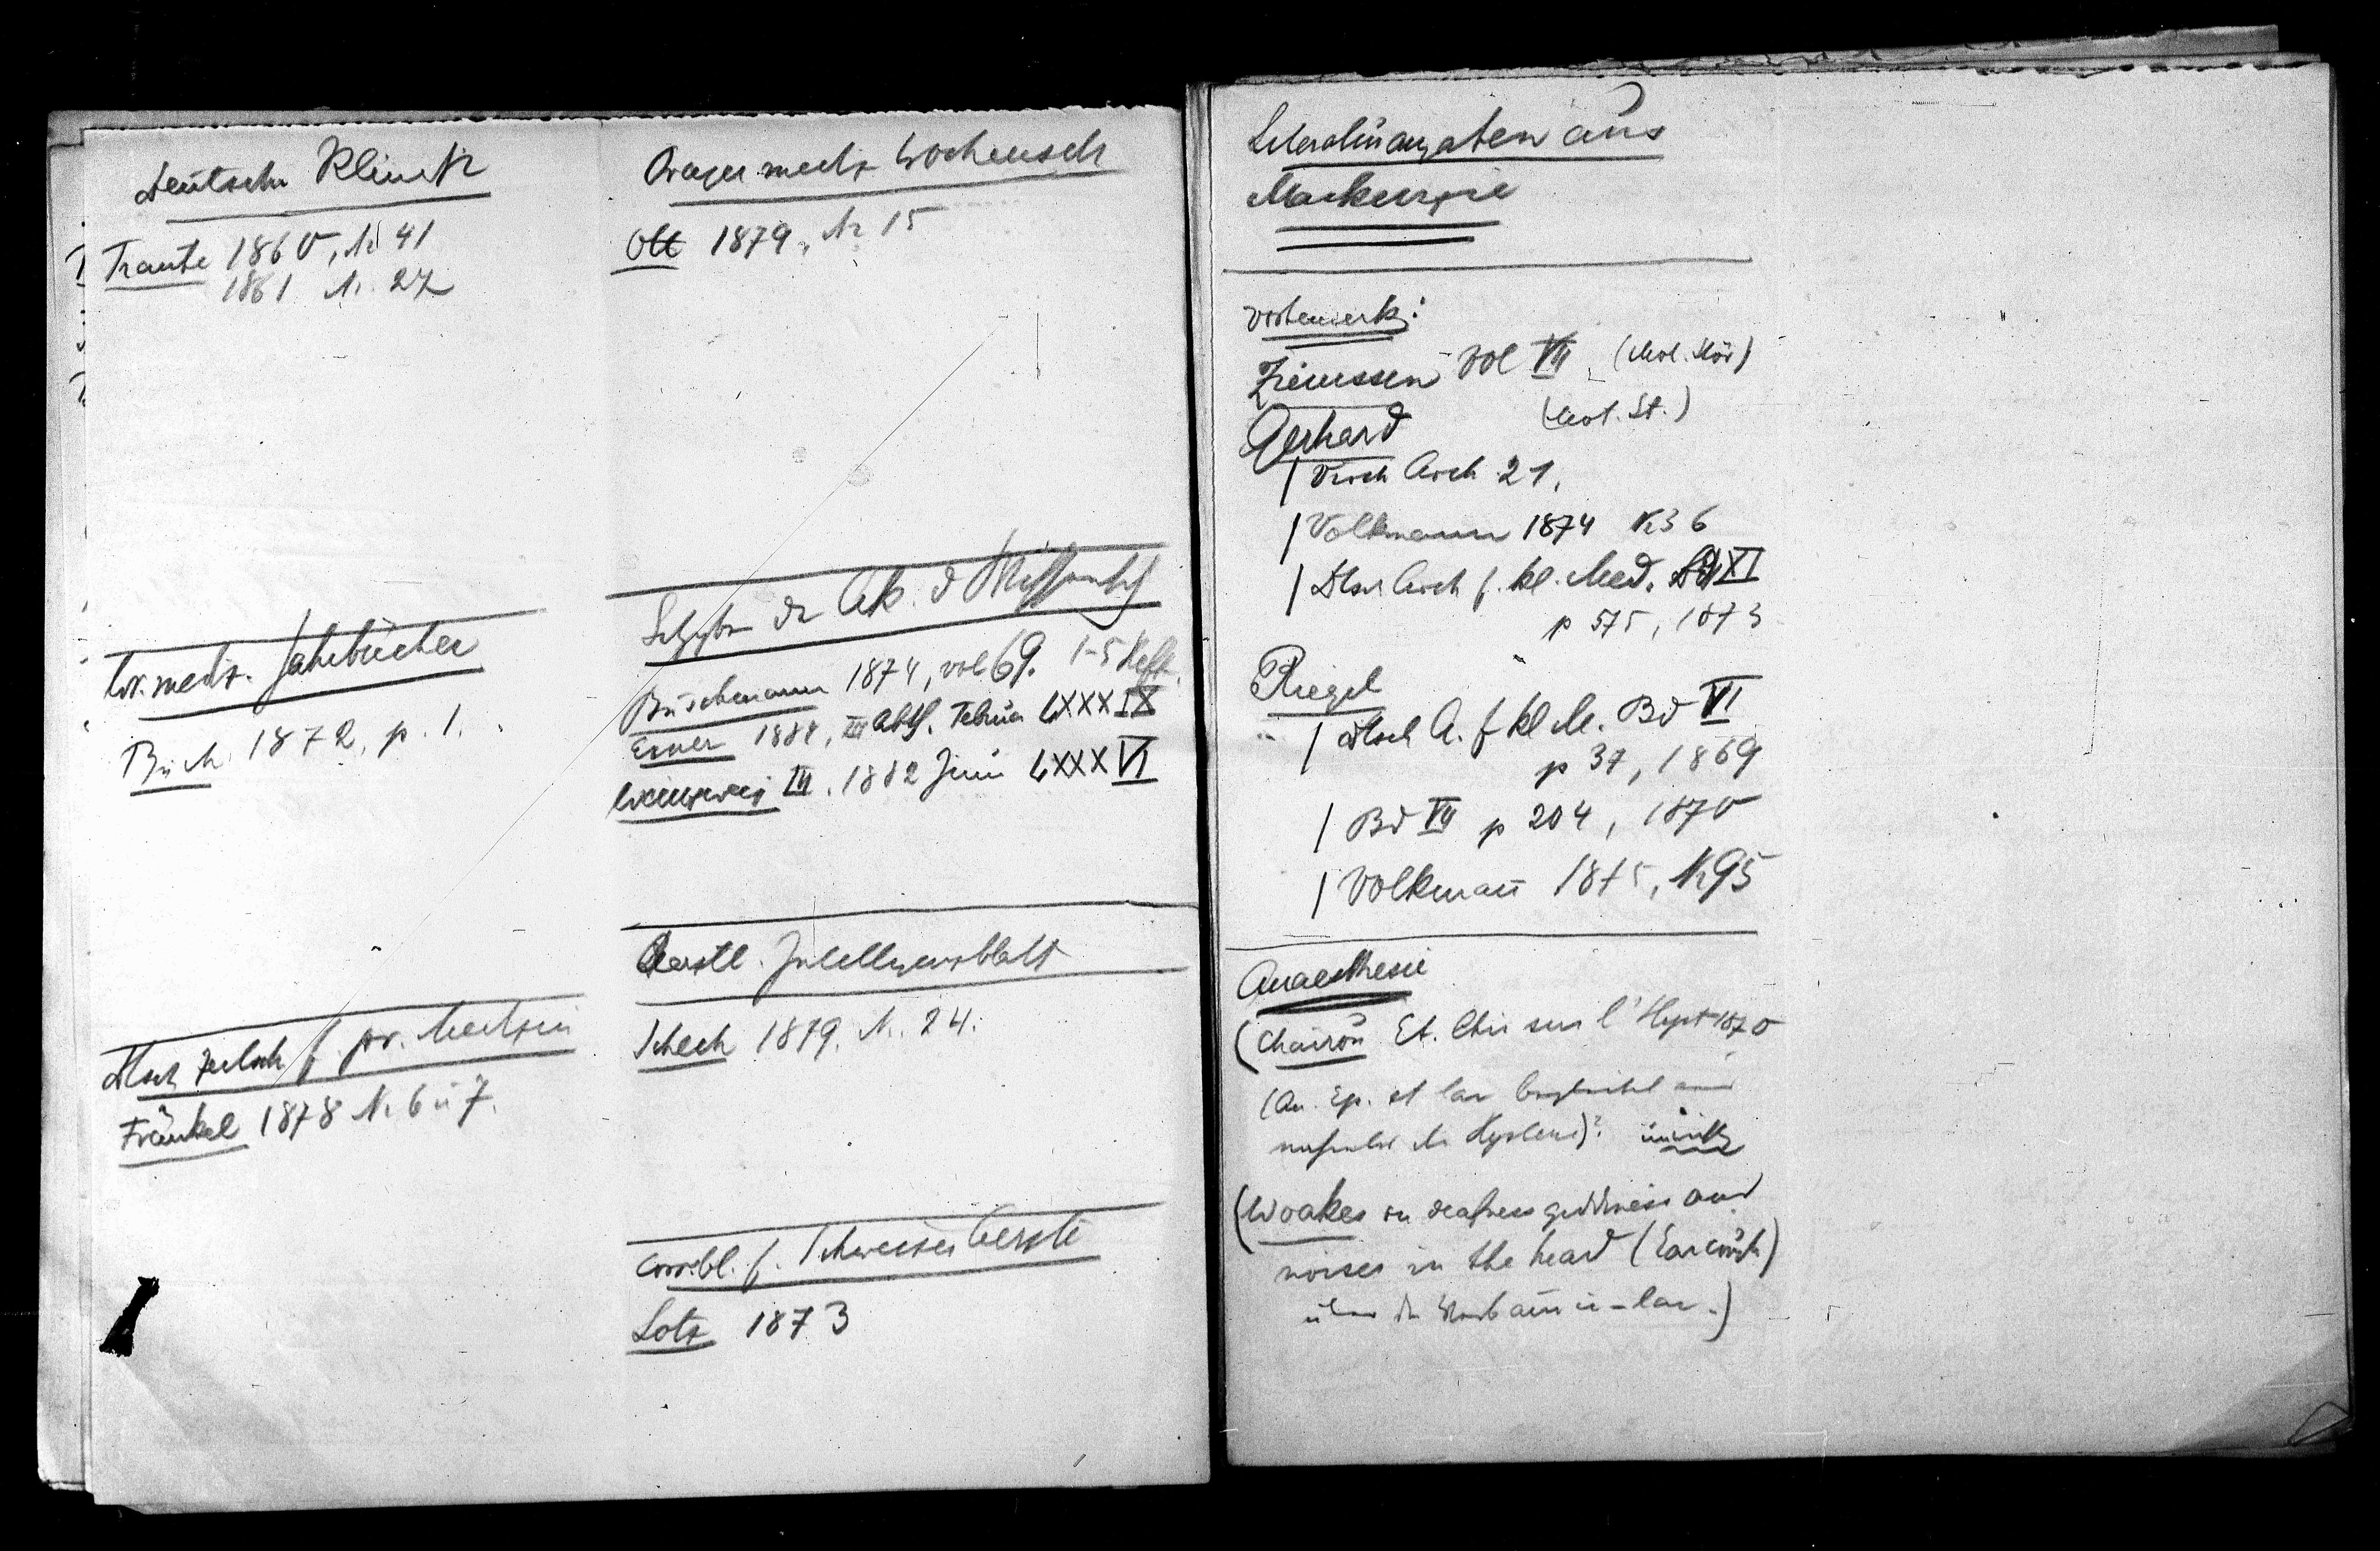 Deutsche Klinik
Traube 1860, Nr 41
1861 Nr. 27
W. mediz. Jahrbücher
1872, p. 1.
Dtsch Zeitsch f. pr. Medizin
Fränkel 1878 Nr 6 u 7.
Prager mediz Wochensch
Ott 1879, Nr 15
Sitzgsber der Ak. d Wissensch
1874, vol 69. 1-5 Heft.
Exner 1884, III Abth. Februar LXXXIX
III. 1882 Juni LXXXVI
Aerztl. Intelligenzblatt
Schech 1879, Nr. 24.
Corrbl. f. Schweizer Aerzte
Lotz 1873
Literaturangaben aus
Mackenzie
Vorbemerk:
Ziemssen Vol VII (Mot. Stör)
(Mot. St.)
Gerhard
Virch Arch 21.
Volkmann 1874 Nr 36
Dtsch Arch f. kl. Med. Bd XI
p 575, 1873
Riegel
Dtsch A. f kl M. Bd VI
p 37, 1869
Bd VII p 204, 1870
Volkmañ 1875, Nr 95
Anaesthesie
(Chairou Et. Clin sur l'Hyst 1870
(An. Ep. et lar
(Woakes on deafness giddiness and
noises in the head (Ear cough)